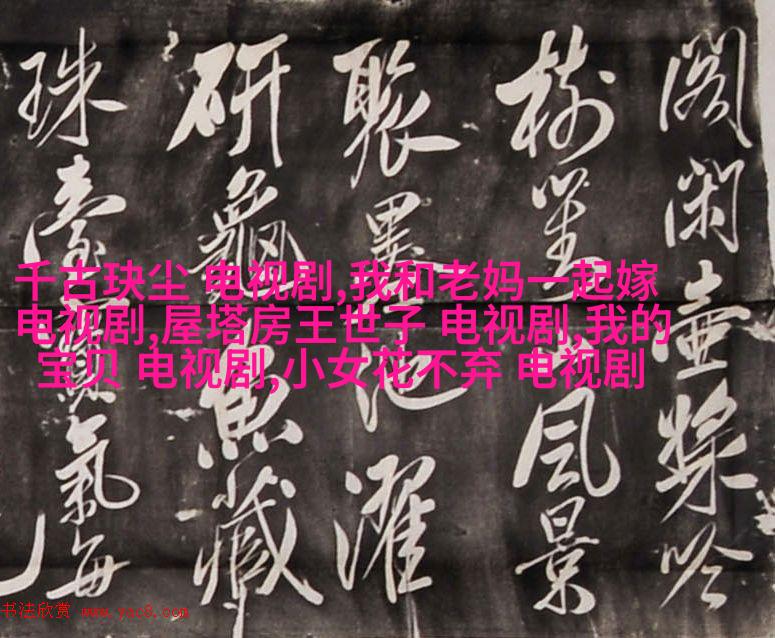 千古玦尘 电视剧,我和老妈一起嫁
电视剧,屋塔房王世子 电视剧,我的
宝贝 电视剧,小女花不弃 电视剧
閑壺吟
樹對風景
聚墨池濯
研龜魚藏
珠臺氣每
书法欣赏 www.yac8.com